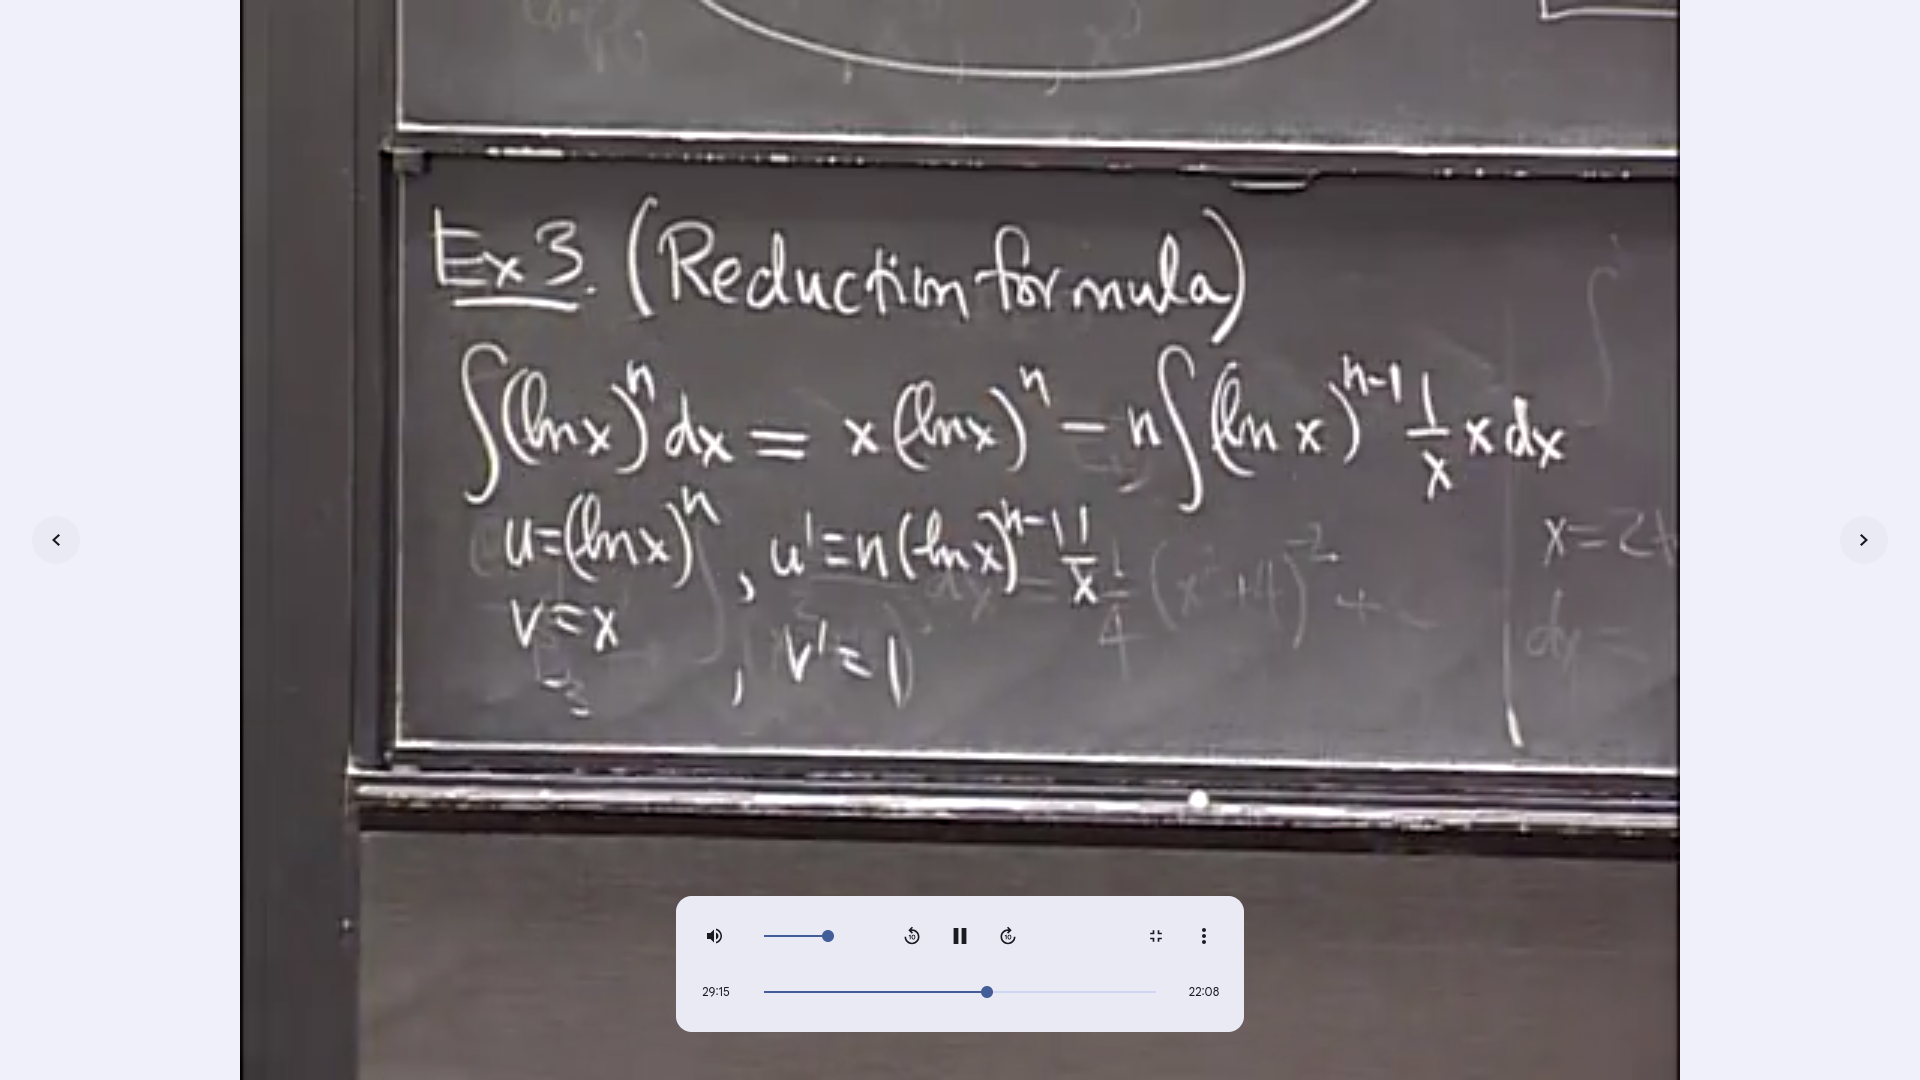 Ex 3. (Reduction formula)
∫(ln x)^n dx = x (ln x)^n − n∫(ln x)^{n-1} 1/x x dx
u=(ln x)^n , u' = n(ln x)^{n-1} 1/x
v = x , v' = 1
29:15
22:08